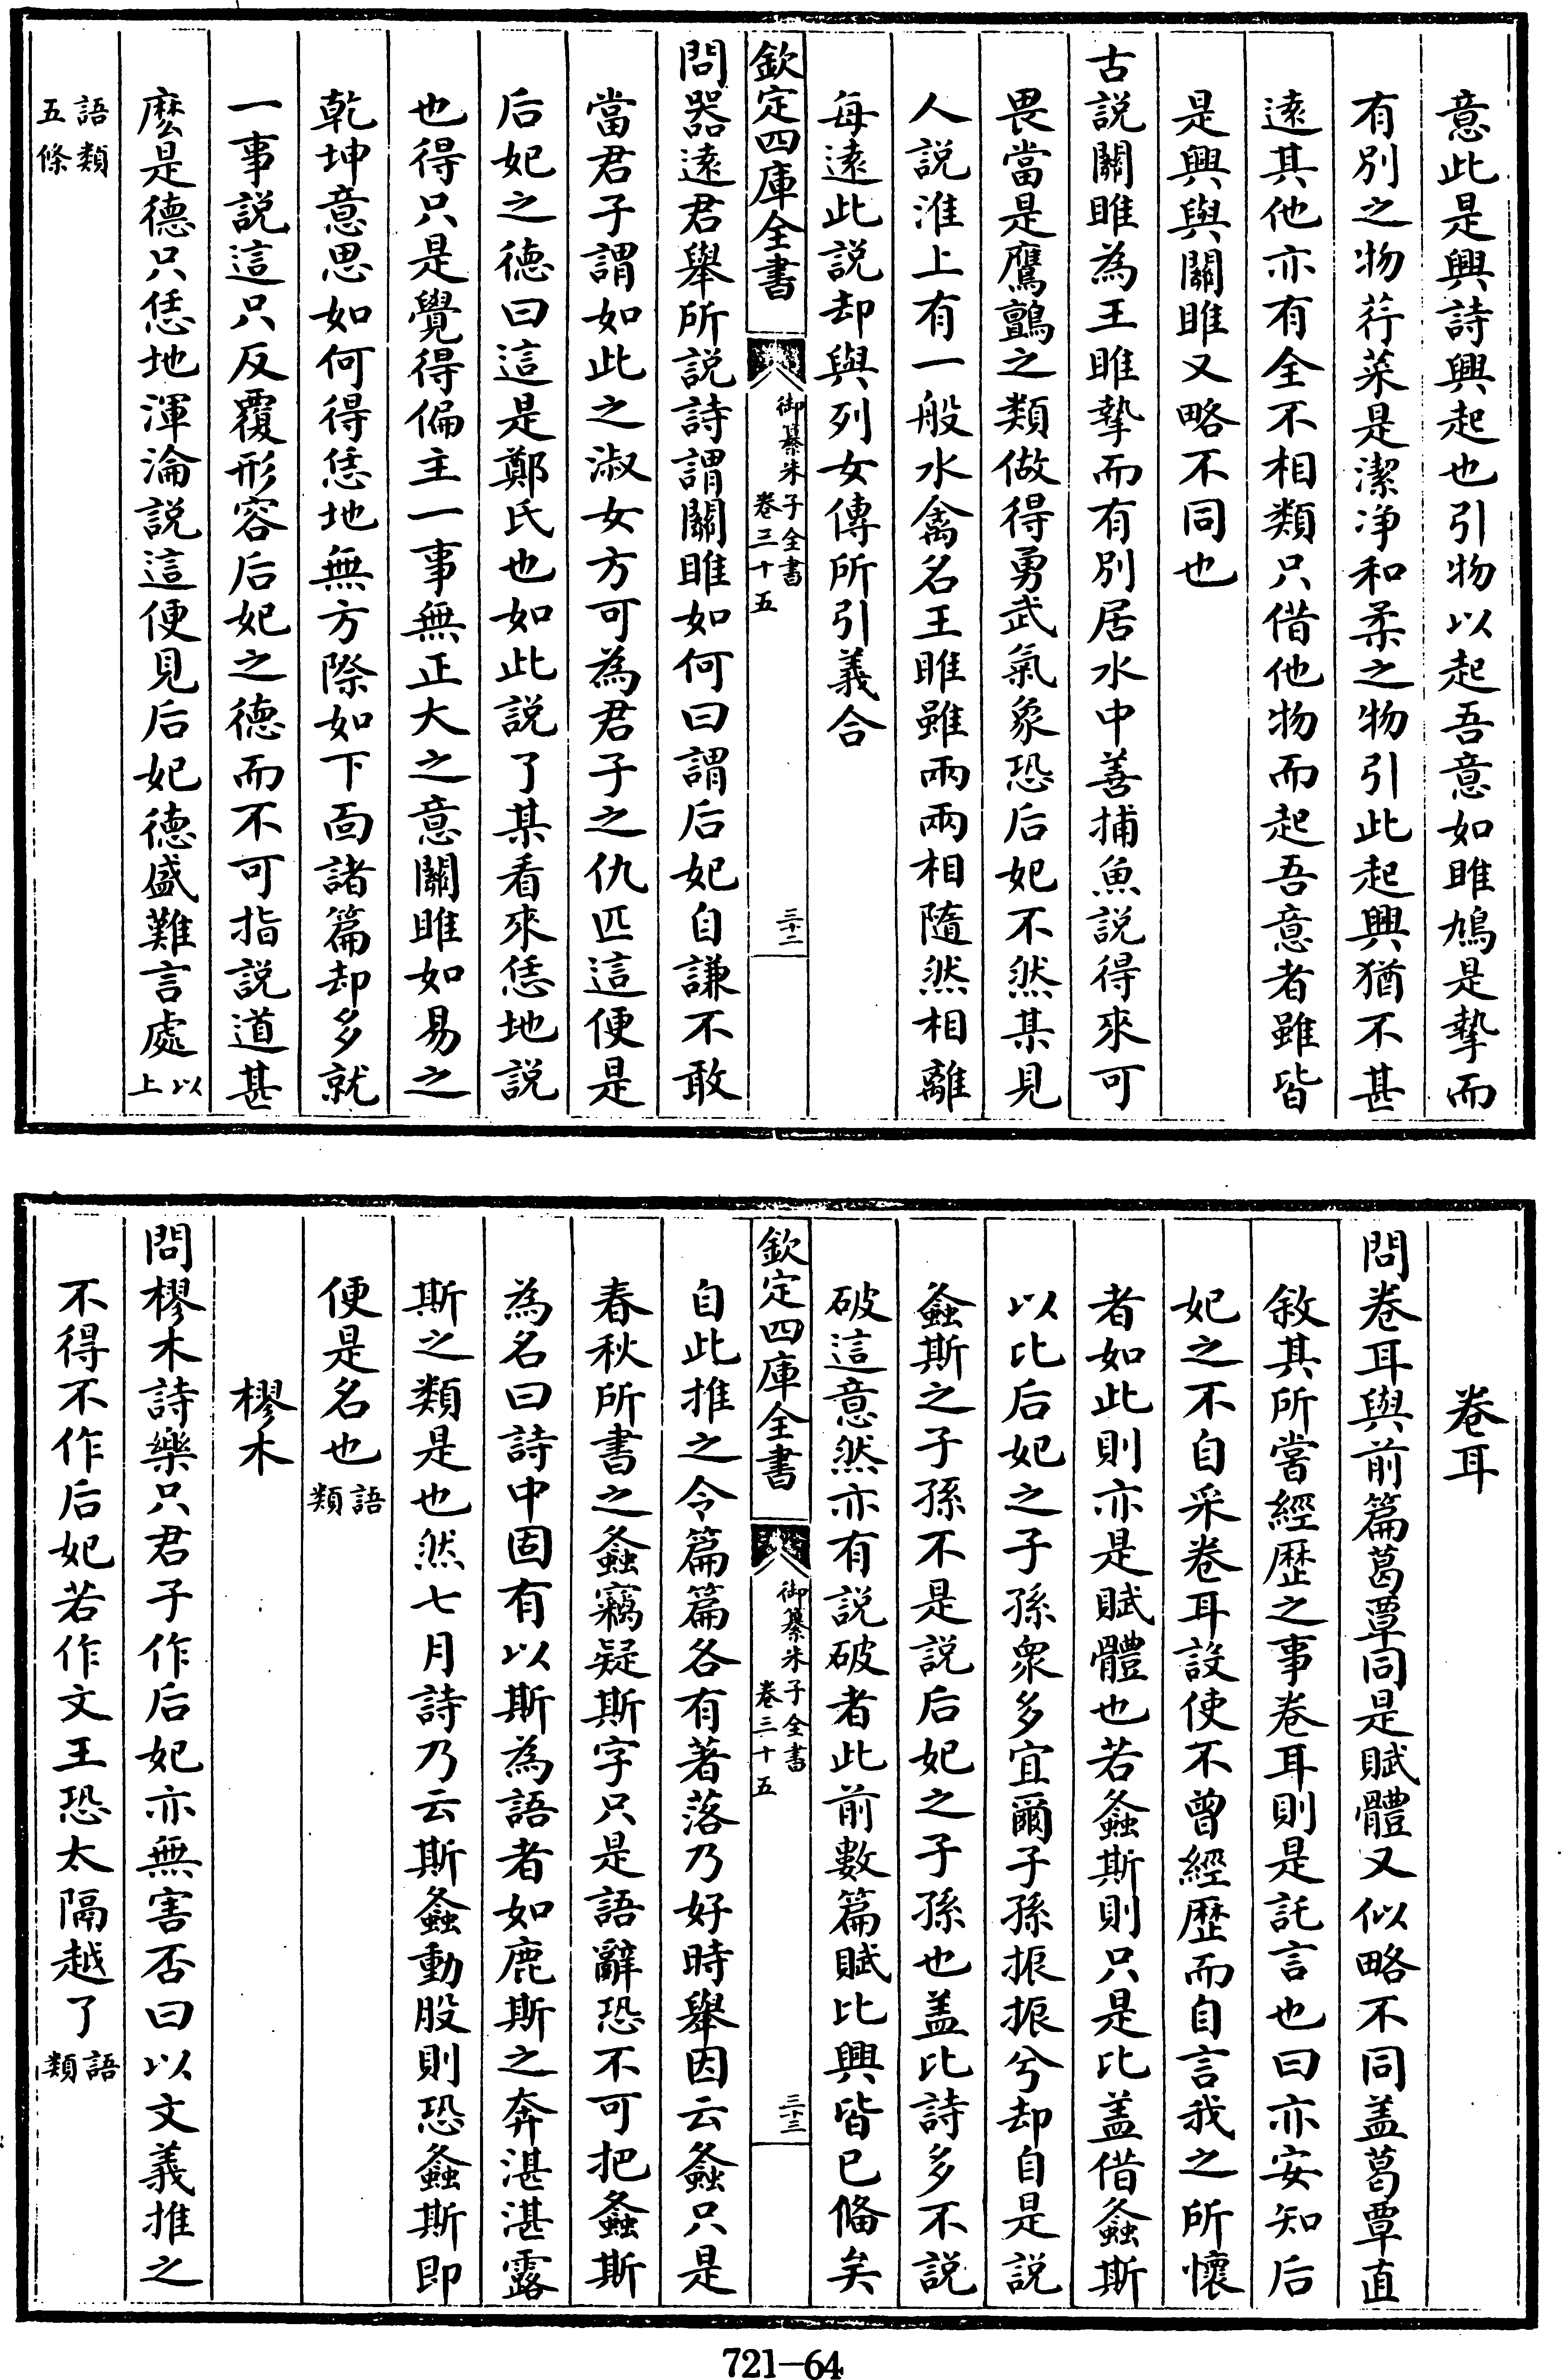 意此是興詩興起也引物以起吾意如雎鳩是摯而
有別之物荇菜是潔净和柔之物引此起興猶不甚
遠其他亦有全不相類只借他物而起吾意者雖皆
是興與關雎又略不同也
古説關雎為王雎摯而有別居水中善捕魚説得來可
畏當是鷹鸇之類做得勇武氣象恐后妃不然某見
人説淮上有一般水禽名王雎雖兩兩相隨然相離
每遠此説却與列女傳所引義合
欽定四庫全書
御纂朱子全書
卷三十五
三十二
問器遠君舉所説詩謂關雎如何曰謂后妃自謙不敢
當君子謂如此之淑女方可為君子之仇匹這便是
后妃之德曰這是鄭氏也如此説了某看來恁地説
也得只是覺得偏主一事無正大之意關雎如易之
乾坤意思如何得恁地無方際如下面諸篇却多就
一事説這只反覆形容后妃之德而不可指説道甚
麽是德只恁地渾淪説這便見后妃德盛難言處以上
語類
五條
卷耳
問卷耳與前篇葛覃同是賦體又似略不同盖葛覃直
敘其所嘗經歴之事卷耳則是託言也曰亦安知后
妃之不自采卷耳設使不曾經歴而自言我之所懷
者如此則亦是賦體也若螽斯則只是比盖借螽斯
以比后妃之子孫衆多宜爾子孫振振兮却自是説
螽斯之子孫不是説后妃之子孫也盖比詩多不説
破這意然亦有説破者此前數篇賦比興皆已備矣
欽定四庫全書
御纂朱子全書
卷三十五
三十三
自此推之令篇篇各有著落乃好時舉因云螽只是
春秋所書之螽竊疑斯字只是語辭恐不可把螽斯
為名曰詩中固有以斯為語者如鹿斯之奔湛湛露
斯之類是也然七月詩乃云斯螽動股則恐螽斯即
便是名也語類
樛木
問樛木詩樂只君子作后妃亦無害否曰以文義推之
不得不作后妃若作文王恐太隔越了語類
721-64